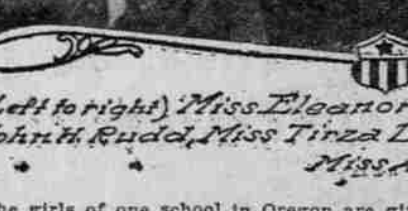 Left to right) Miss Eleanor
ohn H. Rudd, Miss Tirza
Miss
he girls of one school in Oregon are